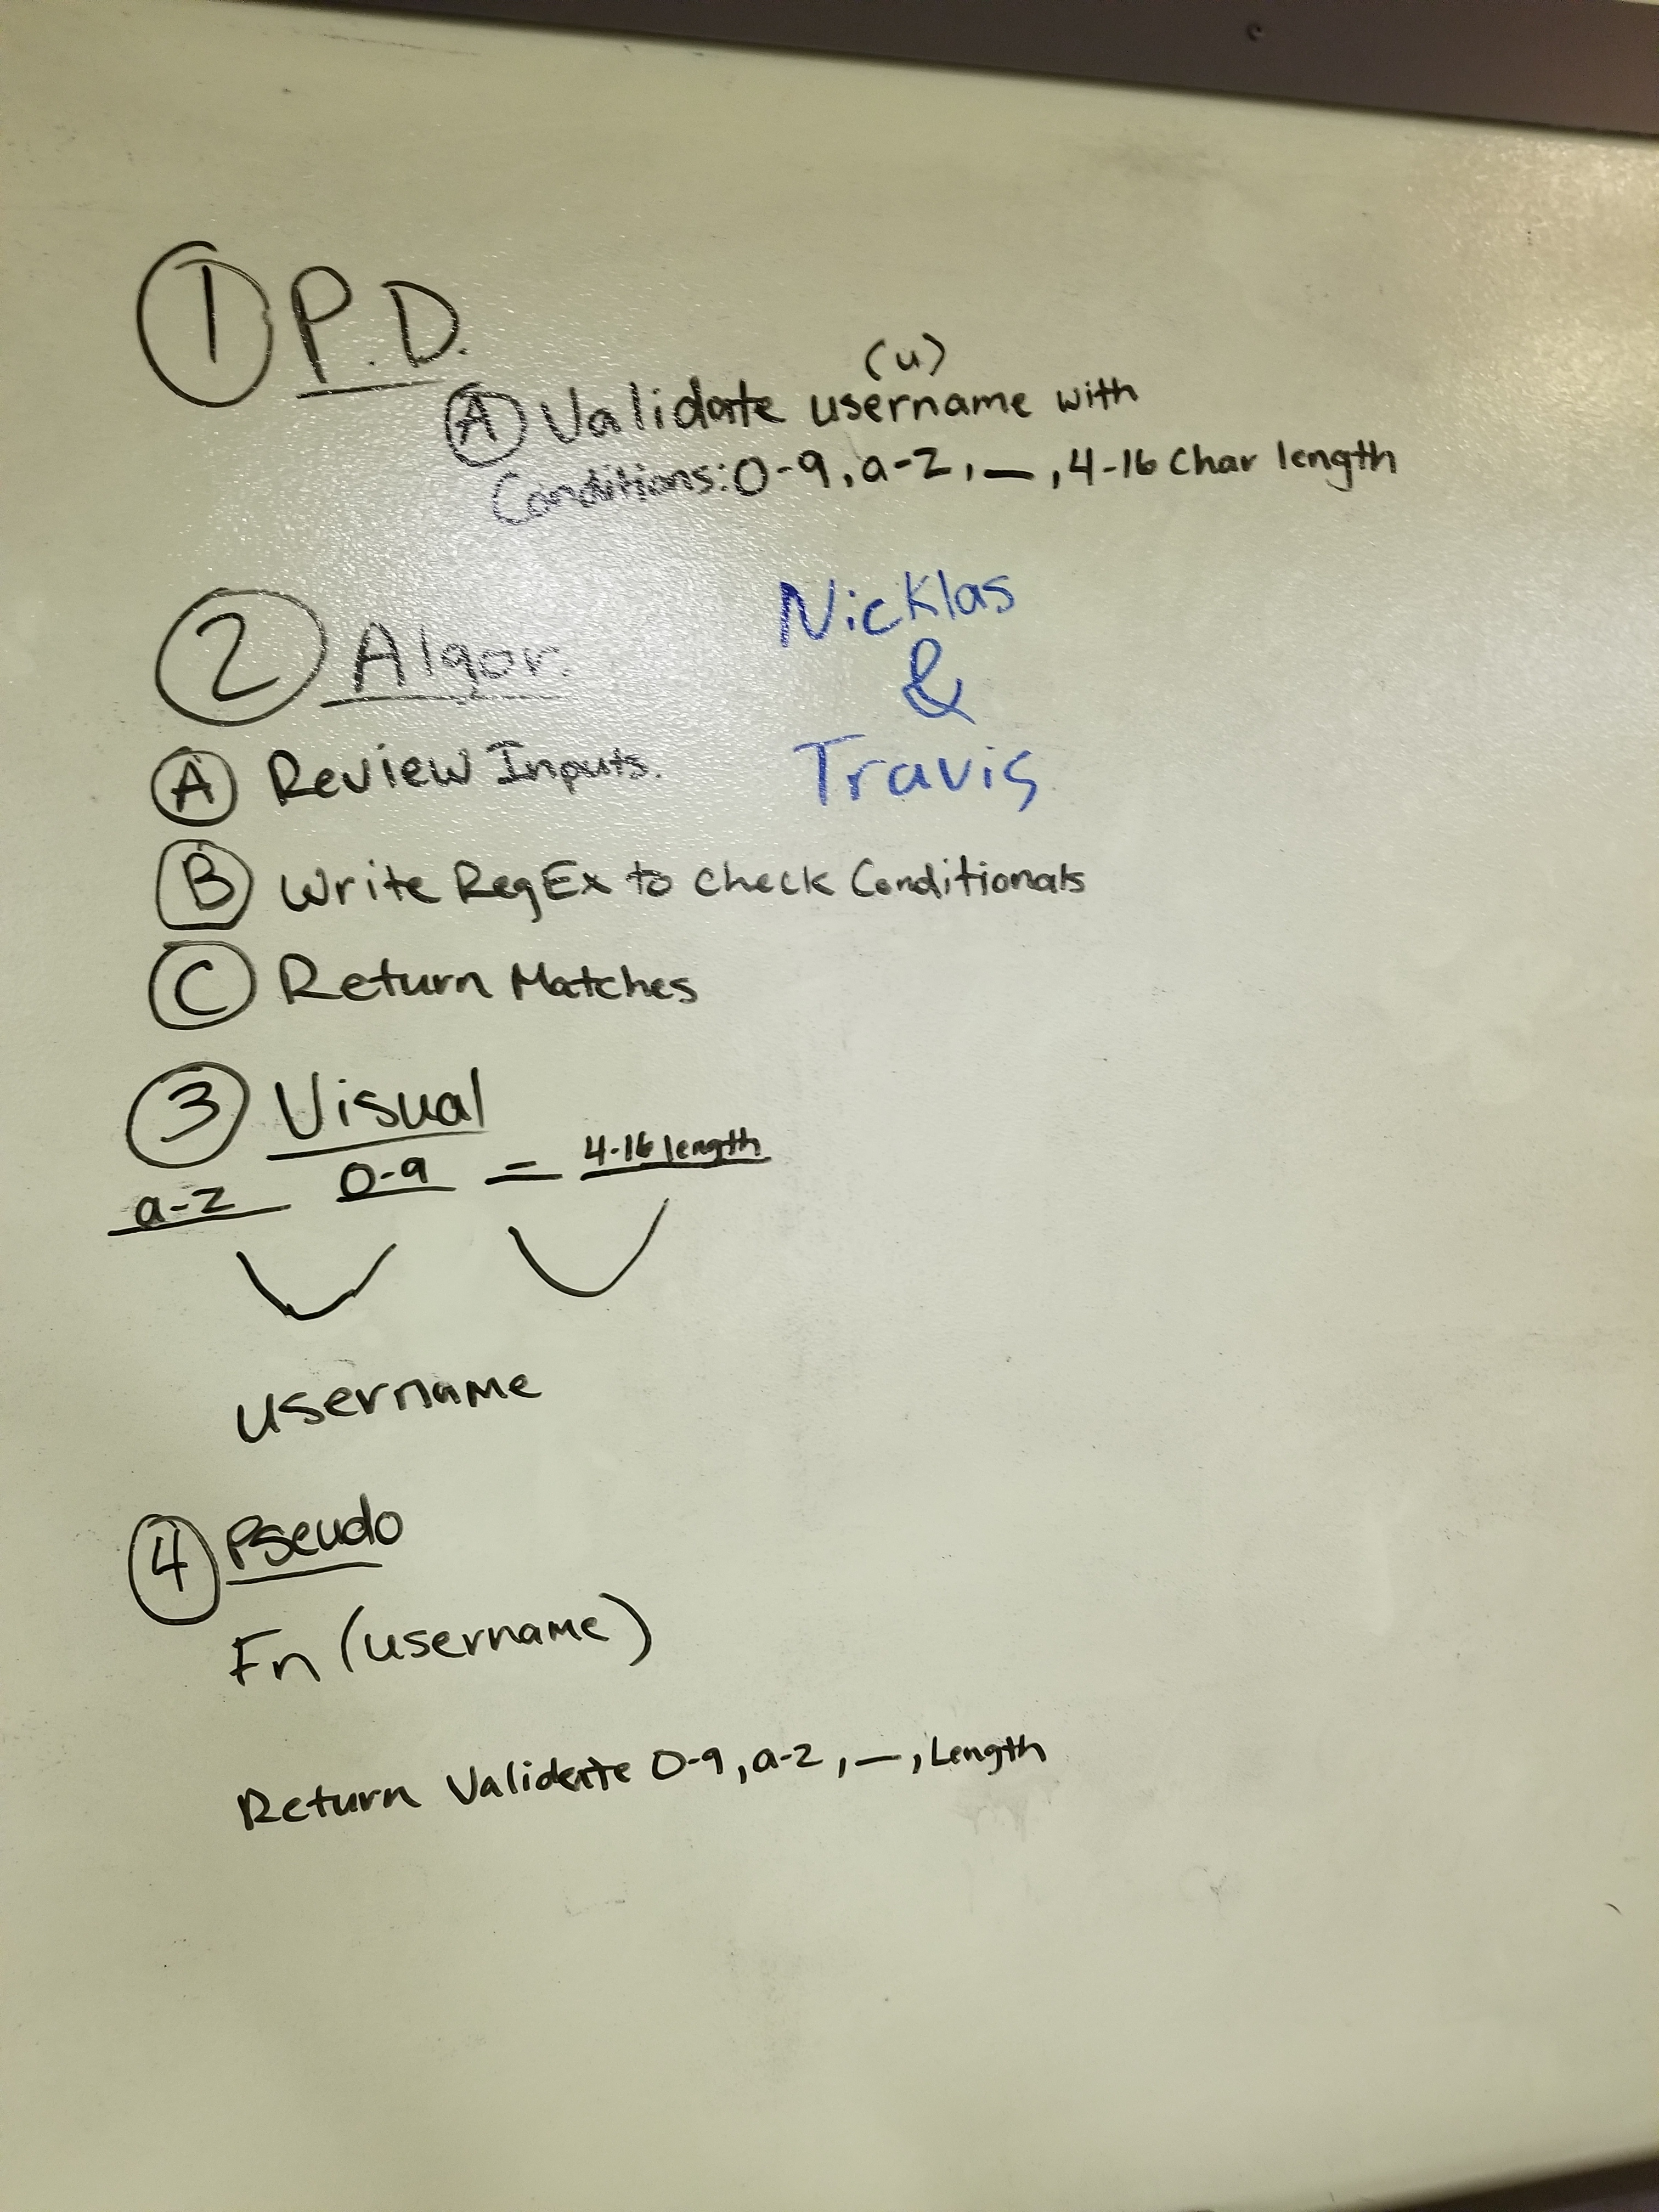 1 P.D.
(u)
A Validate username with
Conditions: 0-9, a-z, _, 4-16 Char length
Nicklas
&
Travis
2 Algor.
A Review Inputs.
B Write RegEx to check Conditionals
C Return Matches
3 Visual
a-z 0-9 = 4-16 length
username
4 Pseudo
Fn (username)
Return Validate 0-9, a-z, _, Length